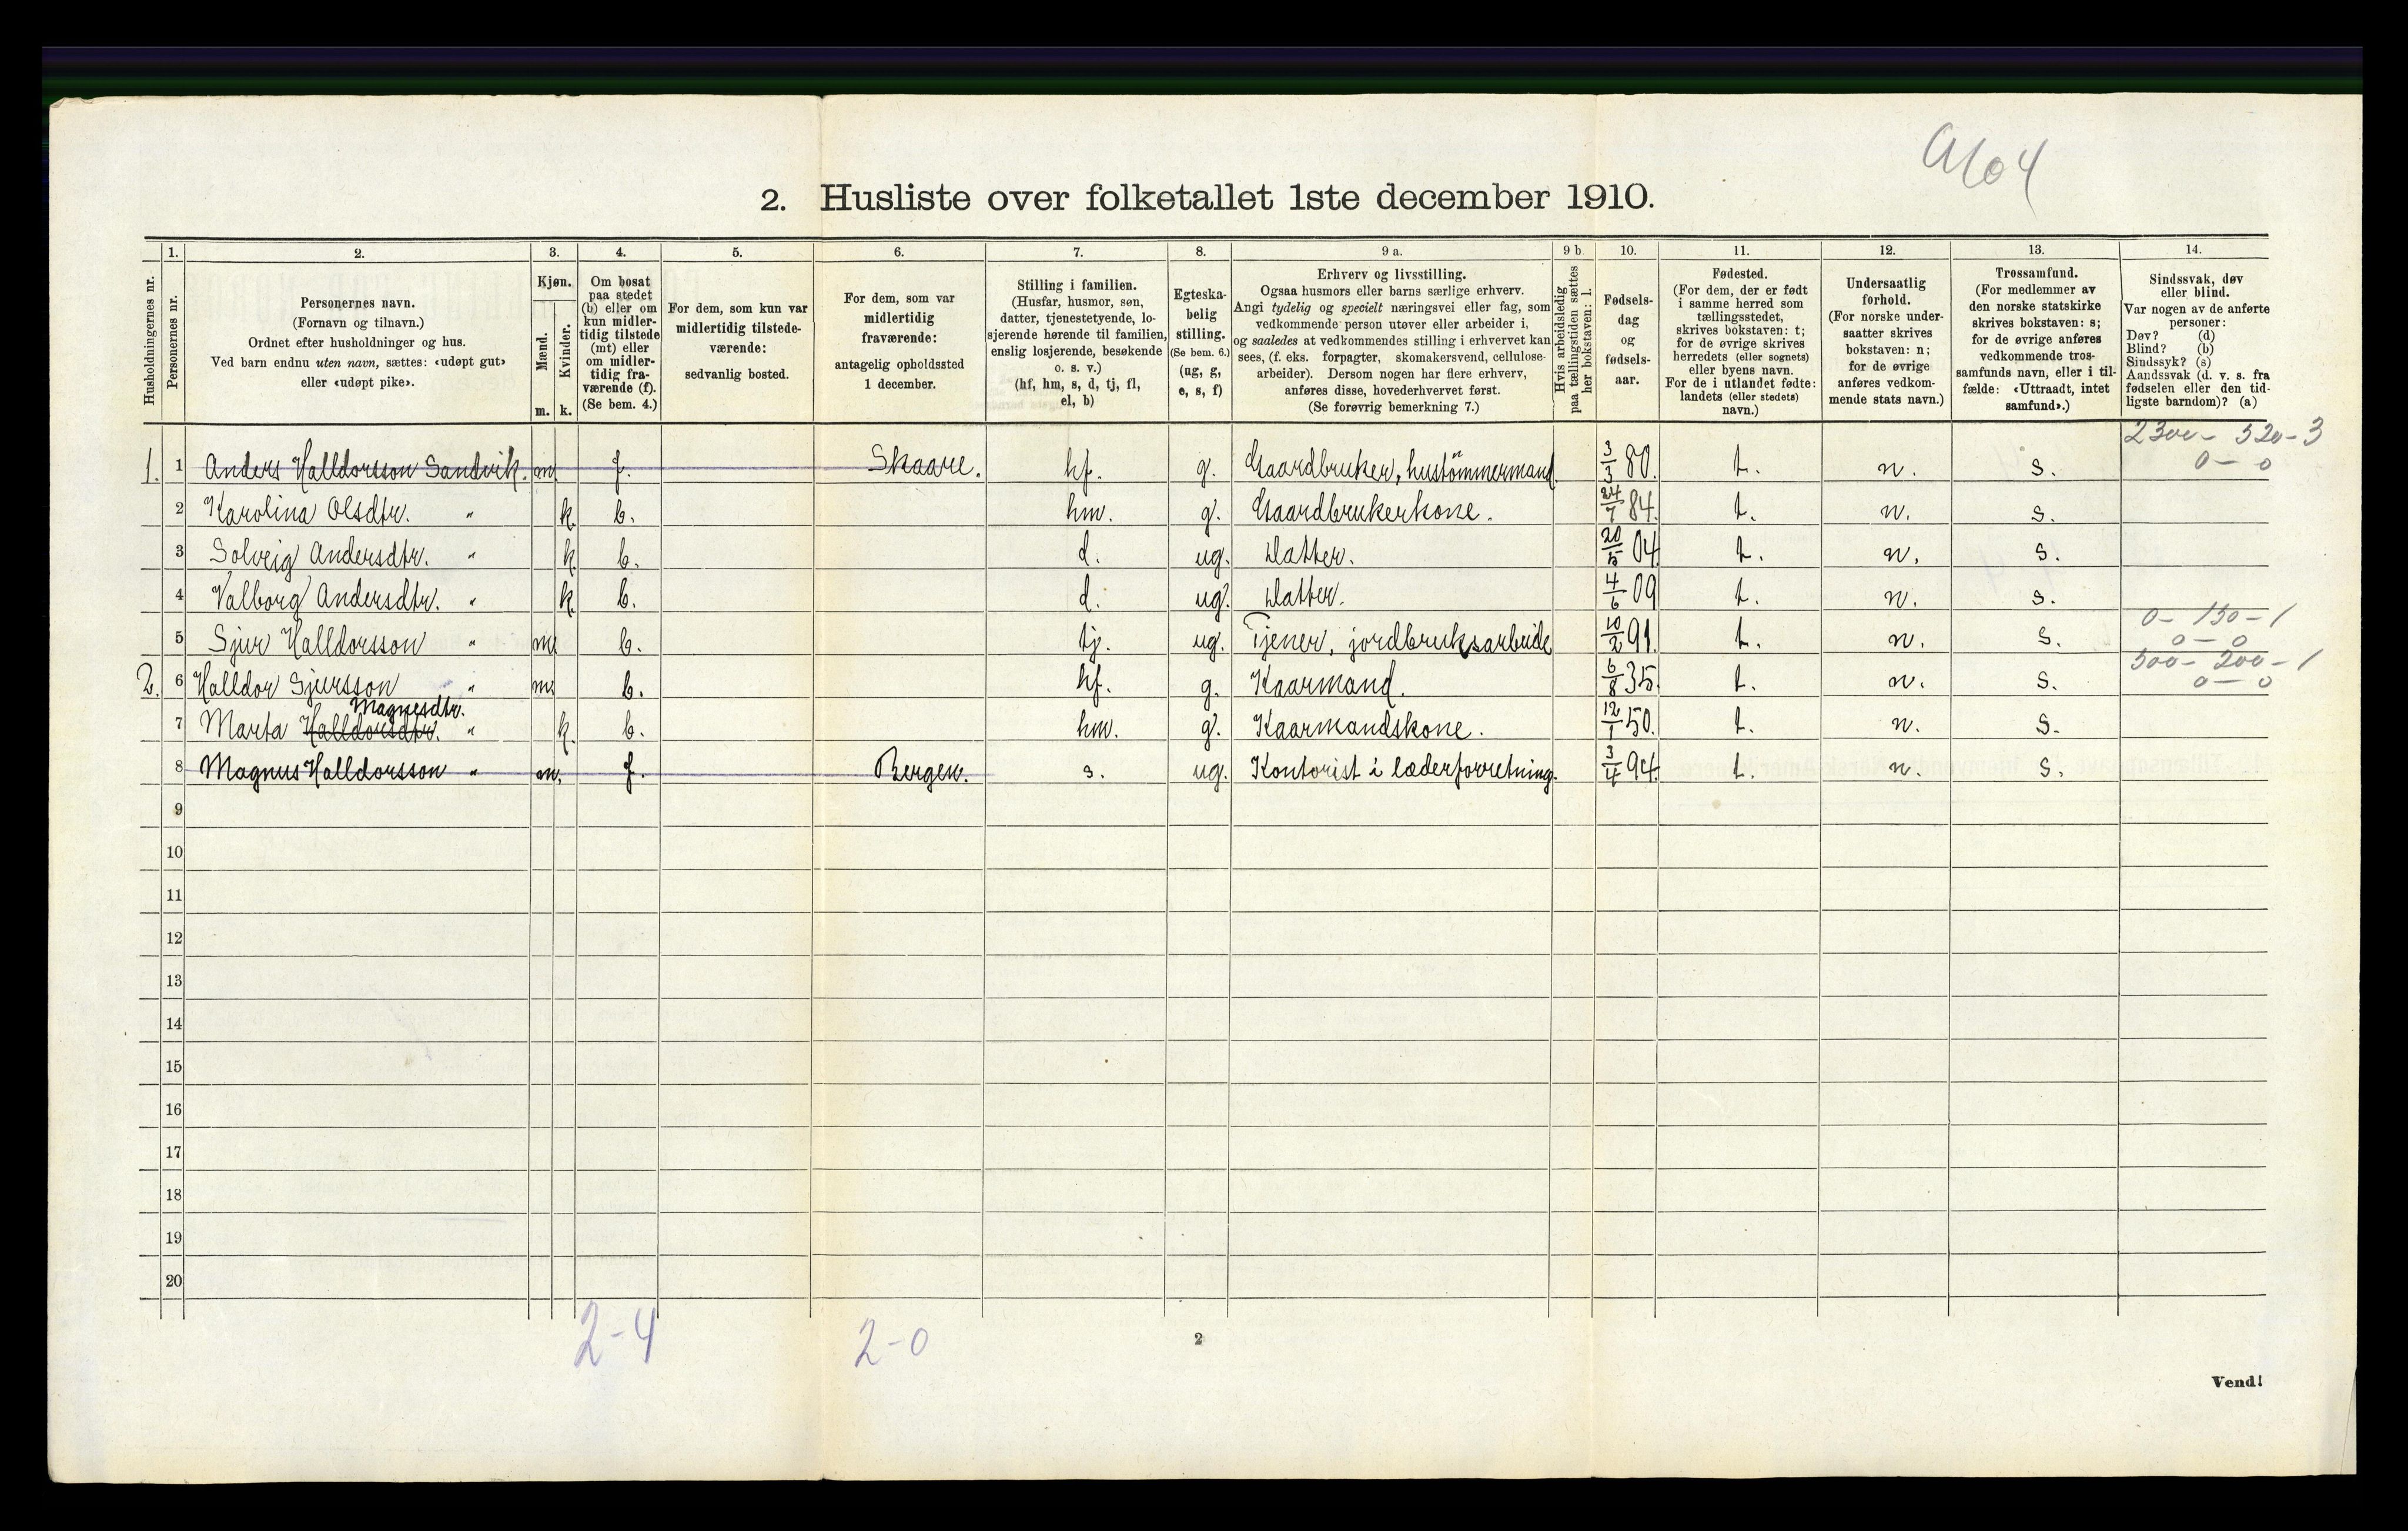 Gl64
2. Husliste over folketallet 1ste december 1910.
Husholdningernes nr.
1.
Personernes nr.
2.
Personernes navn.
(Fornavn og tilnavn.)
Ordnet efter husholdninger og hus.
Ved barn endnu uten navn, sættes: «udøpt gut»
eller «udøpt pike».
3.
Kjøn.
Mænd.
Kvinder.
m. k.
4.
Om bosat
paa stedet
(b) eller om
kun midler-
tidig tilstede
(mt) eller
om midler-
tidig fra-
værende (f).
(Se bem. 4.)
5.
For dem, som kun var
midlertidig tilstede-
værende:
sedvanlig bosted.
6.
For dem, som var
midlertidig
fraværende:
antagelig opholdssted
1 december.
7.
Stilling i familien.
(Husfar, husmor, søn,
datter, tjenestetyende, lo-
sjerende hørende til familien,
enslig losjerende, besøkende
o. s. v.)
(hf, hm, s, d, tj, fl,
el, b)
8.
Egteska-
belig
stilling.
(Se bem. 6.)
(ug, g,
e, s, f)
9 a.
Erhverv og livsstilling.
Ogsaa husmors eller barns særlige erhverv.
Angi tydelig og specielt næringsvei eller fag, som
vedkommende person utøver eller arbeider i,
og saaledes at vedkommendes stilling i erhvervet kan
sees, (f. eks. forpagter, skomakersvend, cellulose-
arbeider). Dersom nogen har flere erhverv,
anføres disse, hovederhvervet først.
(Se forøvrig bemerkning 7.)
9 b.
Hvis arbeidsledig
paa tællingstiden sættes
her bokstaven: l.
10.
Fødsels-
dag
og
fødsels-
aar.
11.
Fødested.
(For dem, der er født
i samme herred som
tællingsstedet,
skrives bokstaven: t;
for de øvrige skrives
herredets (eller sognets)
eller byens navn.
For de i utlandet fødte:
landets (eller stedets)
navn.)
12.
Undersaatlig
forhold.
(For norske under-
saatter skrives
bokstaven: n;
for de øvrige
anføres vedkom-
mende stats navn.)
13.
Trossamfund.
(For medlemmer av
den norske statskirke
skrives bokstaven: s;
for de øvrige anføres
vedkommende tros-
samfunds navn, eller i til-
fælde: «Uttraadt, intet
samfund».)
14.
Sindssvak, døv
eller blind.
Var nogen av de anførte
personer:
Døv? (d)
Blind? (b)
Sindssyk? (s)
Aandssvak (d. v. s. fra
fødselen eller den tid-
ligste barndom)? (a)
2300 - 520 - 3
1. 1 Anders Halldorsson Sandvik. m. f. Skaare. hf. g. Gaardbruker, hustömmermand. 3/3 80. t. n. s. 0 - 0
2 Karolina Olsdtr. " k. b. hm. g. Gaardbrukerkone. 24/7 84. t. n. s.
3 Solveig Andersdtr. " k. b. d. ug. Datter. 20/5 04 t. n. s.
4 Valborg Andersdtr. " k. b. d. ug. Datter. 4/6 09 t. n. s.
0 - 150 - 1
5 Sjur Halldorsson " m. b. tj. ug. Tjener, jordbruksarbeide 10/2 91. t. n. s. 0 - 0
500 - 200 - 1
2. 6 Halldor Sjursson " m. b. hf. g. Kaarmand. 6/8 35. t. n. s. 0 - 0
Magnesdtr.
7 Marta Halldorsdtr. " k. b. hm. g. Kaarmandskone. 12/1 50. t. n. s.
8 Magnus Halldorsson " m. f. Bergen. s. ug. Kontorist i læderforretning. 3/4 94. t. n. s.
9
10
11
12
13
14
15
16
17
18
19
20
2-4
2-0
2
Vend!